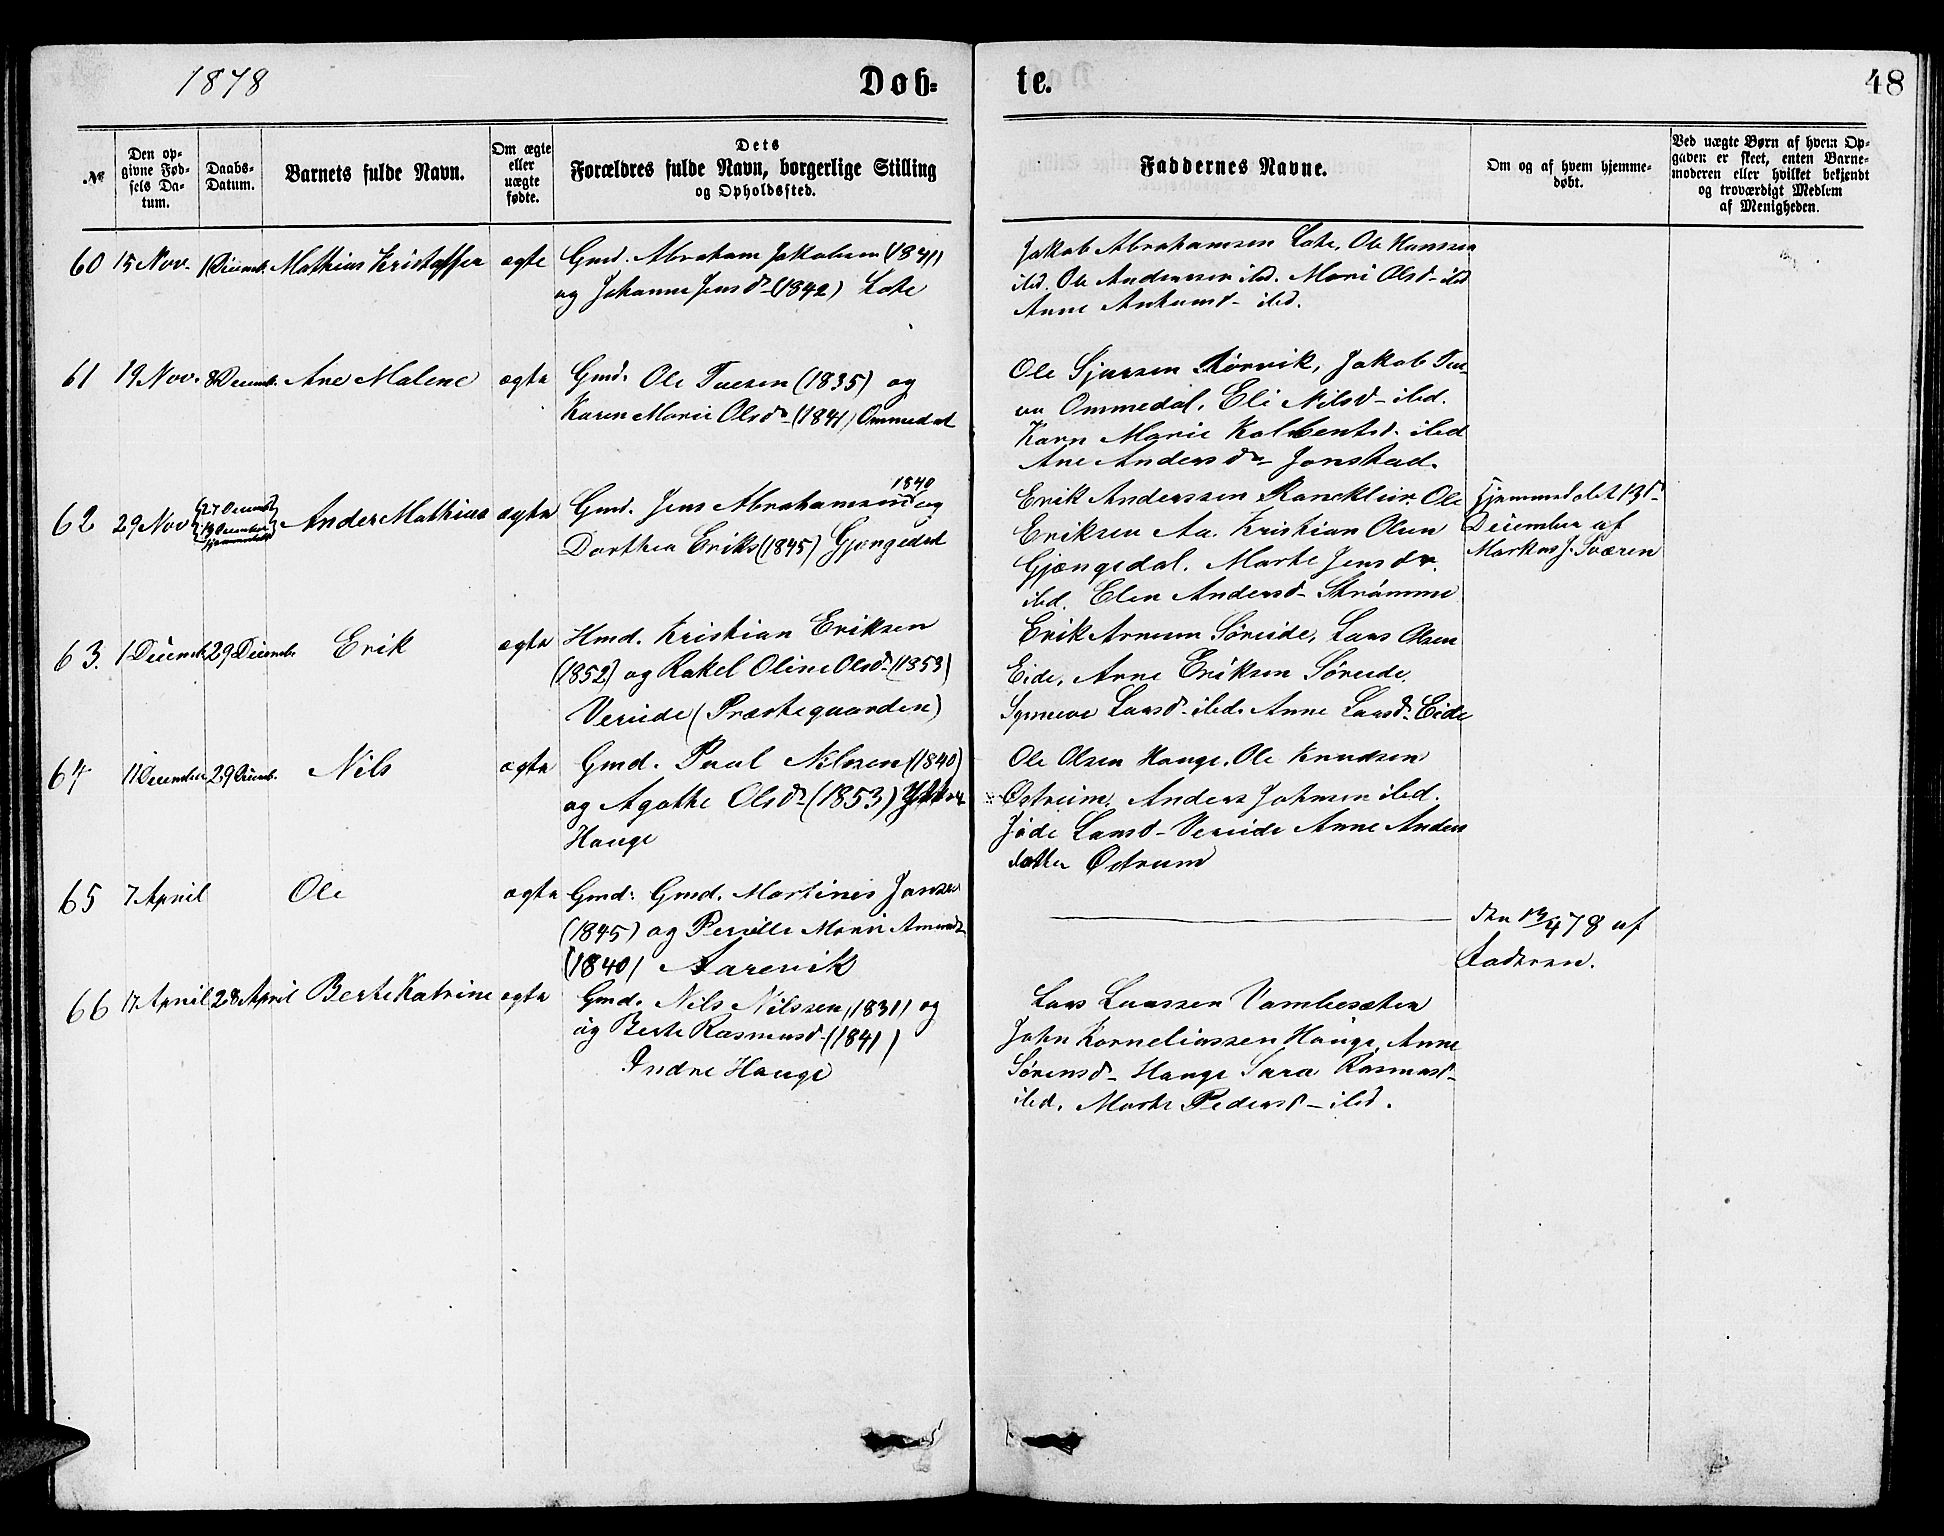 1878
Døb-
te.
48
№
Den op-
givne Fød-
sels Da-
tum.
Daabs-
Datum.
Barnets fulde Navn.
Om ægte
eller
uægte
fødte.
Dets
Forældres fulde Navn, borgerlige Stilling
og Opholdssted.
Faddernes Navne.
Om og af hvem hjemme-
døbt.
Ved uægte Børn af hvem Op-
gaven er skeet, enten Barne-
moderen eller hvilket bekjendt
og troværdigt Medlem
af Menigheden.
60 15 Nov. 1 Decemb. Mathias Kristoffer ægte Gmd. Abraham Jakobsen (1841)
og Johanne Jensd- (1842) Lote
Jakob Abrahamsen Lote, Ole Hanssen
ibd. Ole Anderssen ibd. Mari Olsd- ibd
Anne ibd.
61 19 Nov. 8 Decemb. Ane Malene ægte Gmd. Ole Tuesen (1835) og
Karen Marie Olsd- (1841) Ommedal
Ole Sjurssen Rørvik, Jakob
Ommedal. Eli Nilsd- ibd.
Karn Marie Kolbentsd. ibd
Ane Andersd- Jonstad.
62 29 Nov {27 Decemb
19 December
hjemmedøbt} Anders Mathias ægte Gmd. Jens Abrahamsen 1840 og
Dorthea Eriks (1845) Gjengedal
Erik Anderssen Ole
Eriksen Aa. Kristian Olsen
Gjængedal. Marte Jensdr.
ibd. Elen Andersd- Strømme
Hjemmedøbt 19d-
December af
Markus J. Sværen
63. 1 Decemb 29 Decembr Erik ægte Hmd. Kristian Eriksen
(1852) og Rakel Oline Olsd- (1853)
Vereide (Præstegaarden)
Erik Arnesen Søreide, Lars Olsen
Eide, Arne Eriksen Søreide.
Synneve Larsd- ibd. Anne Larsd- Eide
64 11 December 29 Decemb. Nils ægte Gmd. Paul Nilssen (1840)
og Agathe Olsd- (1853) Yttre
Hauge
Ole Olsen Hauge. Ole Knudsen
Østreim. Anders Johnsen ibd.
Jøde Larsd- Vereide Anne Anders
datter Østreim
65 7 April Ole ægte Gmd: Gmd. Martines Janssen
(1845) og Pernille Marie
(1840) Aarevik
den 13/4 78 af
Faderen.
66 17 April 28 April Berte Katrine ægte Gmd. Nils Nilssen (1831) og
og Berte Rasmusd- (1841)
Indre Hauge
Lars Larssen Vambesæter
John Korneliussen Hauge, Anne
Sørensd- Hauge Sara Rasmusd-
ibd. Marte Pedersd- ibd.